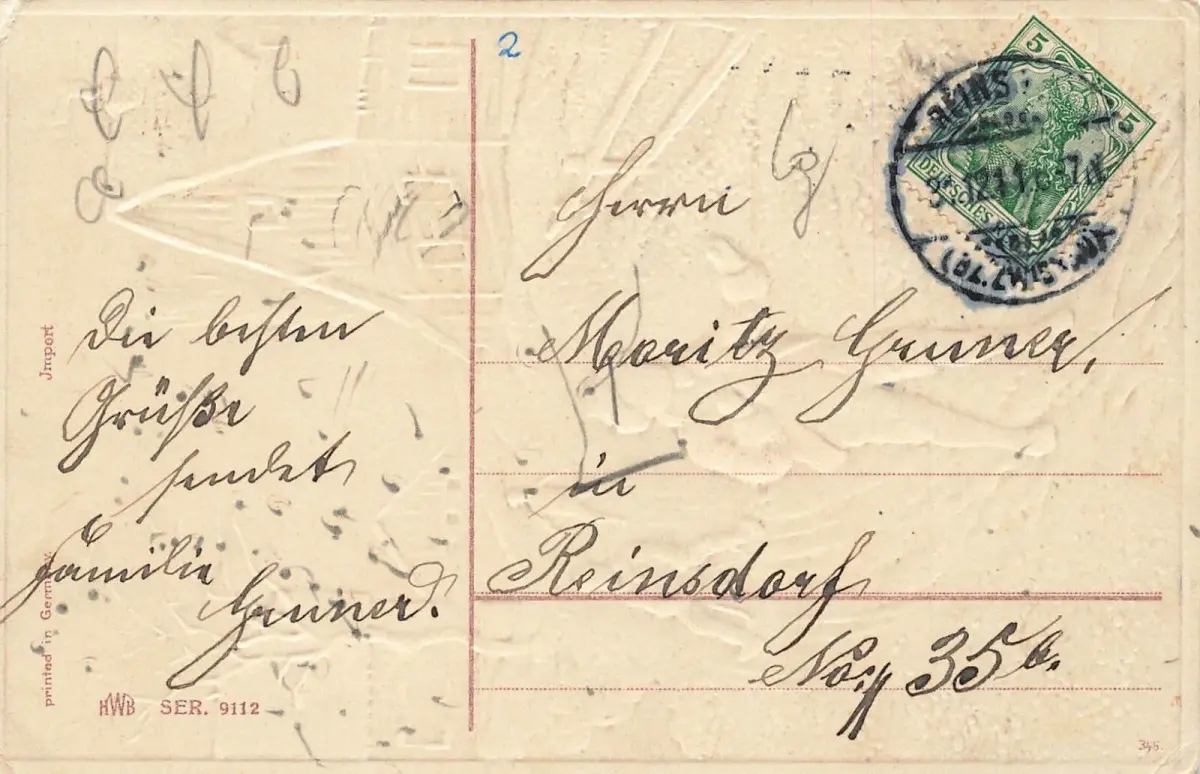 2
5
5
DEUTSCHES REICH
REINS
(BZ. ZWICKAU)
Die besten
Grüße
sendet
Familie
Gruner.
Herrn
Moritz Gruner,
in
Reinsdorf
No. 35 b.
Jmport
printed in Germany
HWB SER. 9112